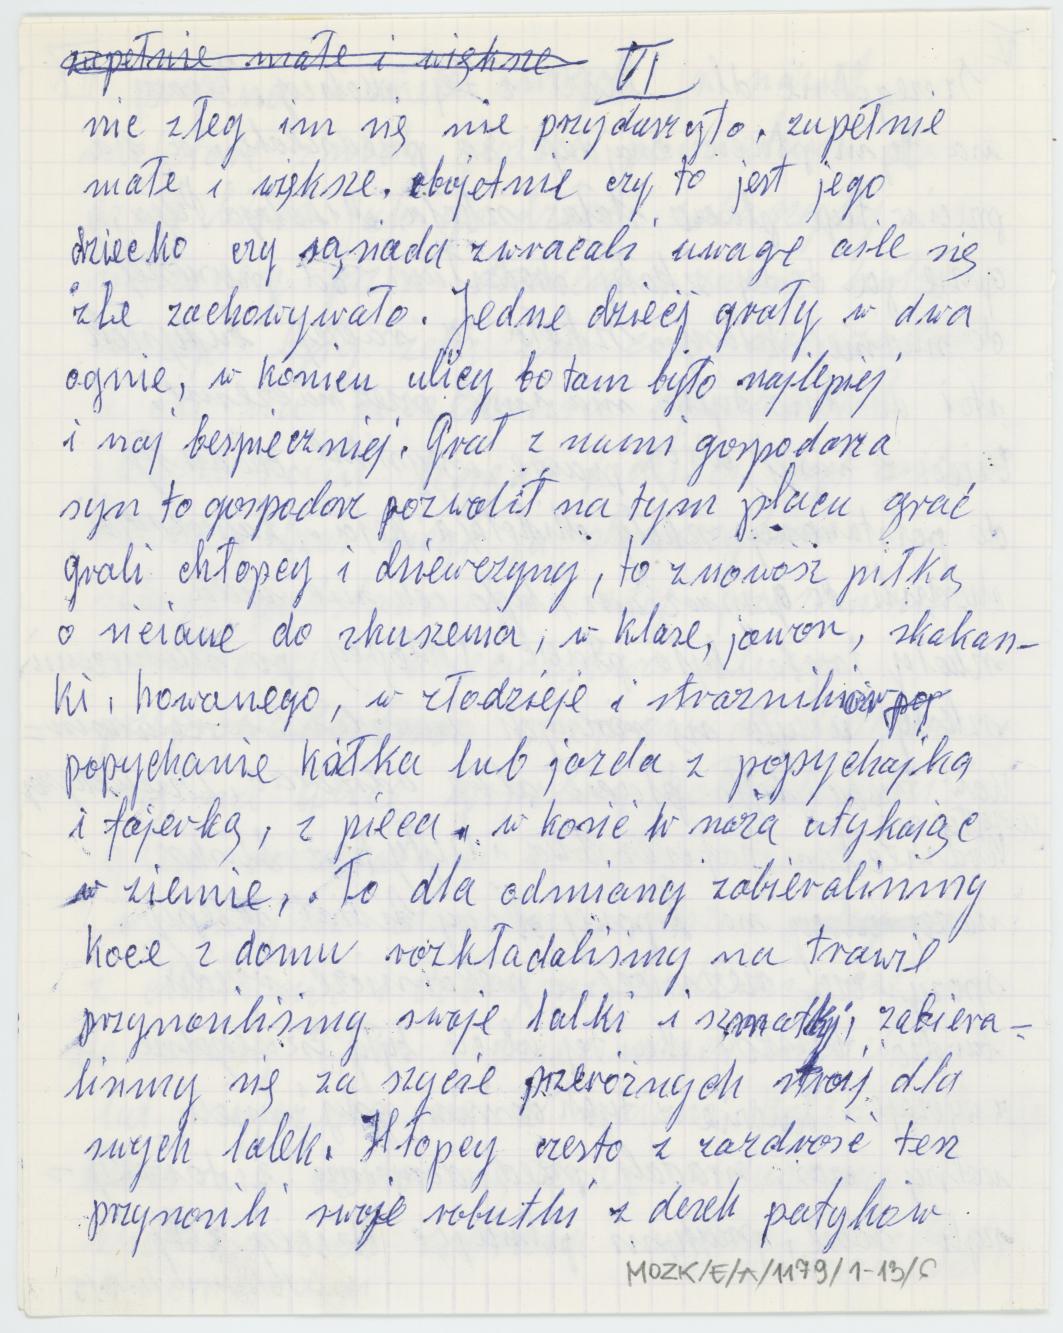 zupełnie małe i większe VI
nic złeg im się nie przydarzyło, zupełnie
małe i większe. obojętnie czy to jest jego
dziecko czy sąsiada zwracali uwagę aśle się
źle zachowywało. Jedne dzieci grały w dwa
ognie, w koncu ulicy bo tam było najlepiej
i naj bespieczniej. Grał z nami gospodarza
syn to gospodarz pozwolił na tym placu grać
grali chłopcy i dziewczyny, to znowósz piłką
o ściane do skuszenia, w klase, jawor, skakan-
ki, howanego, w złodzieje i strażników
popychanie kółka lub jazda z popychajką
i fajerką, z pieca. w kosić w noża utykając
w ziemie,. To dla odmiany zabieraliśmy
koce z domu rozkładaliśmy na trawie
przynosiliśmy swoje lalki i szmatki, zabiera-
liśmy się za szycie przeróżnych stroj dla
swych lalek. Hłopcy czesto z zazdrość tesz
przynosili swoje robutki z desek patyków
MOZK/E/A/1179/1-13/6